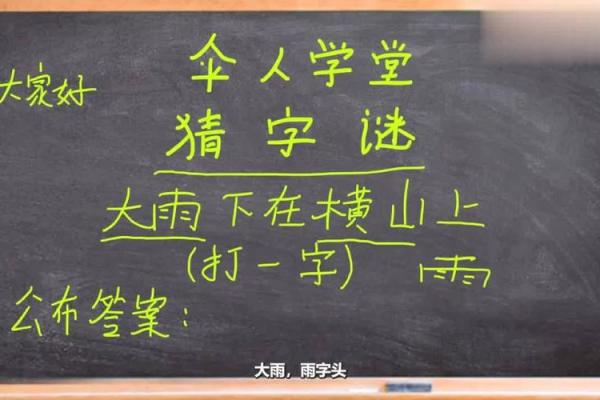 伞人学堂
大家好
猜字谜
大雨下在横山上
(打一字) 雨
公布答案：
大雨，雨字头